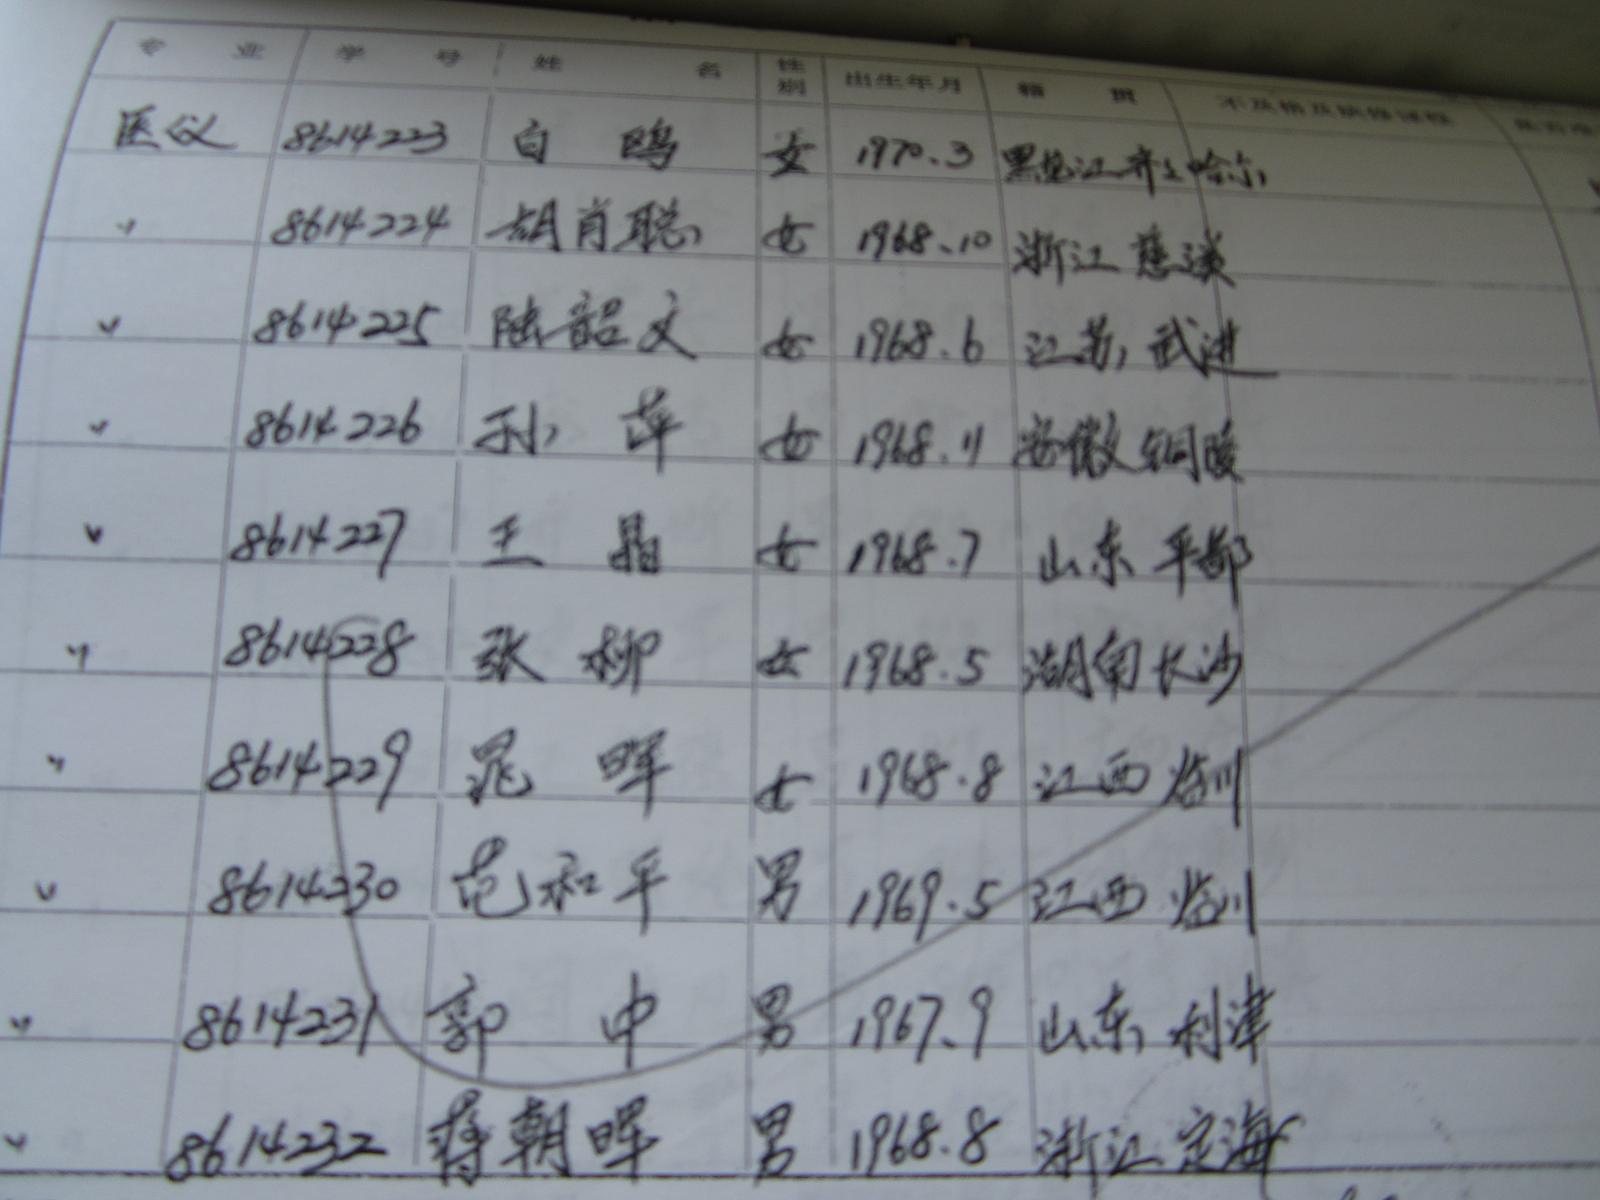 专业 学号 姓名 性别 出生年月 籍贯 不及格及缺修课程
医仪 8614223 白鸥 女 1970.3 黑龙江齐々哈尔
〃 8614224 胡肖聪 女 1968.10 浙江慈溪
〃 8614225 陆韶文 女 1968.6 江苏武进
〃 8614226 孙萍 女 1968.11 安徽铜陵
〃 8614227 王晶 女 1968.7 山东平都
〃 8614228 张柳 女 1968.5 湖南长沙
〃 8614229 晁晖 女 1968.8 江西临川
〃 8614230 范和平 男 1969.5 江西临川
〃 8614231 郭中 男 1967.9 山东利津
〃 8614232 蒋朝晖 男 1968.8 浙江定海